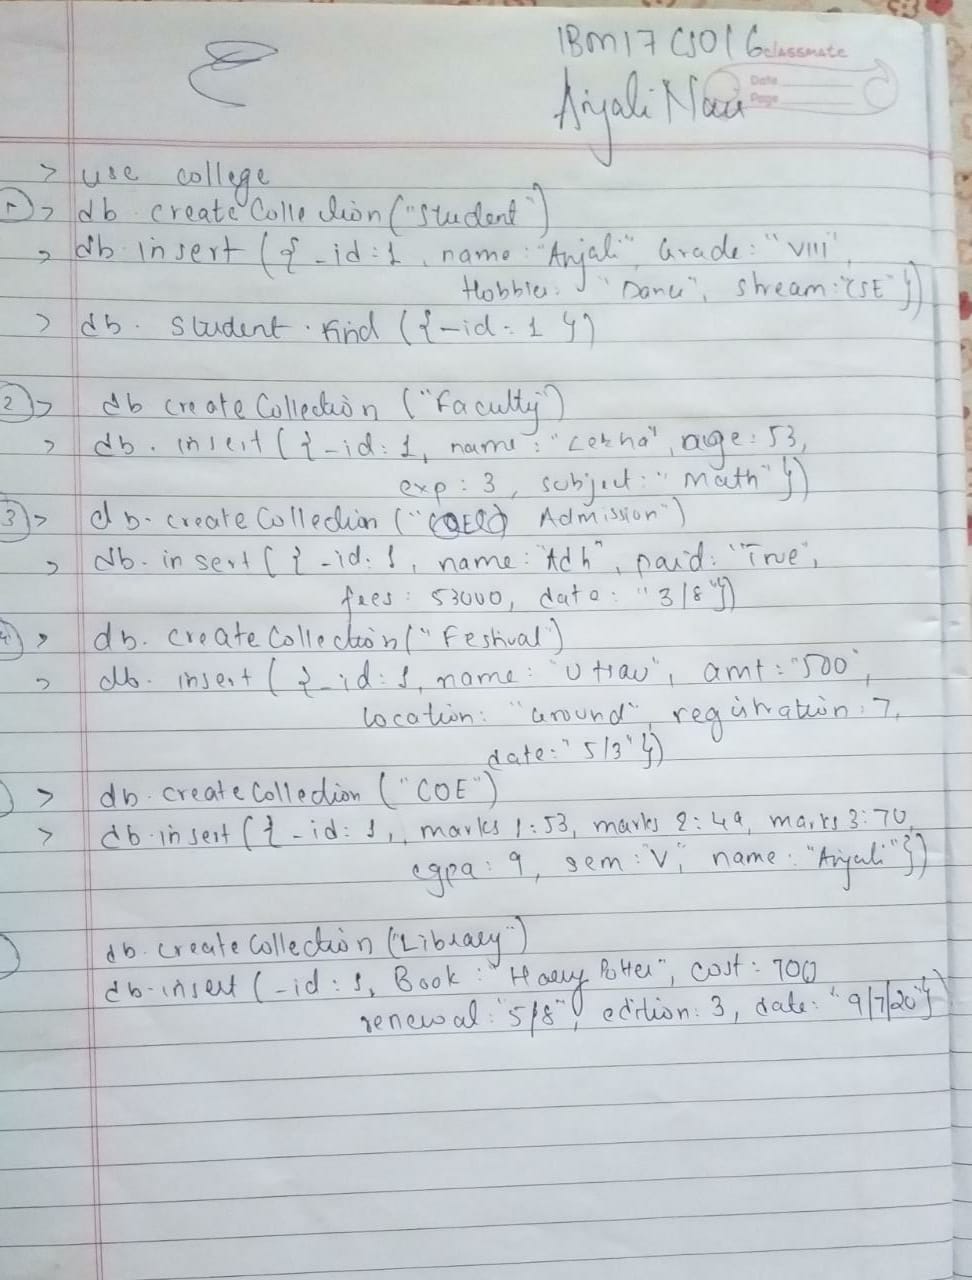 1BM17CS016
classmate
Date
Page
Anjali
> use college
1) > db. createCollection("Student")
> db. insert ({ _id:1, name: "Anjali", Grade: "VIII",
Hobbie: "Dance", stream: "CSE" })
> db. Student. find ({_id: 1 })
2) > db createCollection ("Faculty")
> db. insert ({ _id: 1, name: "Lekha", age: 53,
exp: 3, subject: "Math" })
3) > db. createCollection (" Admission")
> db. insert ({ _id: 1, name: "Adh", paid: "True",
fees: 53000, date: "3/8"})
4) > db. createCollection("Festival")
> db. insert ({ _id: 1, name: "Utsav", amt: "500",
location: "Ground", registration: 7,
date: "5/3" })
) > db. createCollection ("COE")
> db. insert ({ _id: 1, marks 1:53, marks 2:49, marks 3:70,
cgpa: 9, sem: "V", name: "Anjali"})
) db. createCollection ("Library")
db. insert (_id: 1, Book: "Harry Potter", cost: 700
renewal: "5/8", edition: 3, date: "9/7/20"}